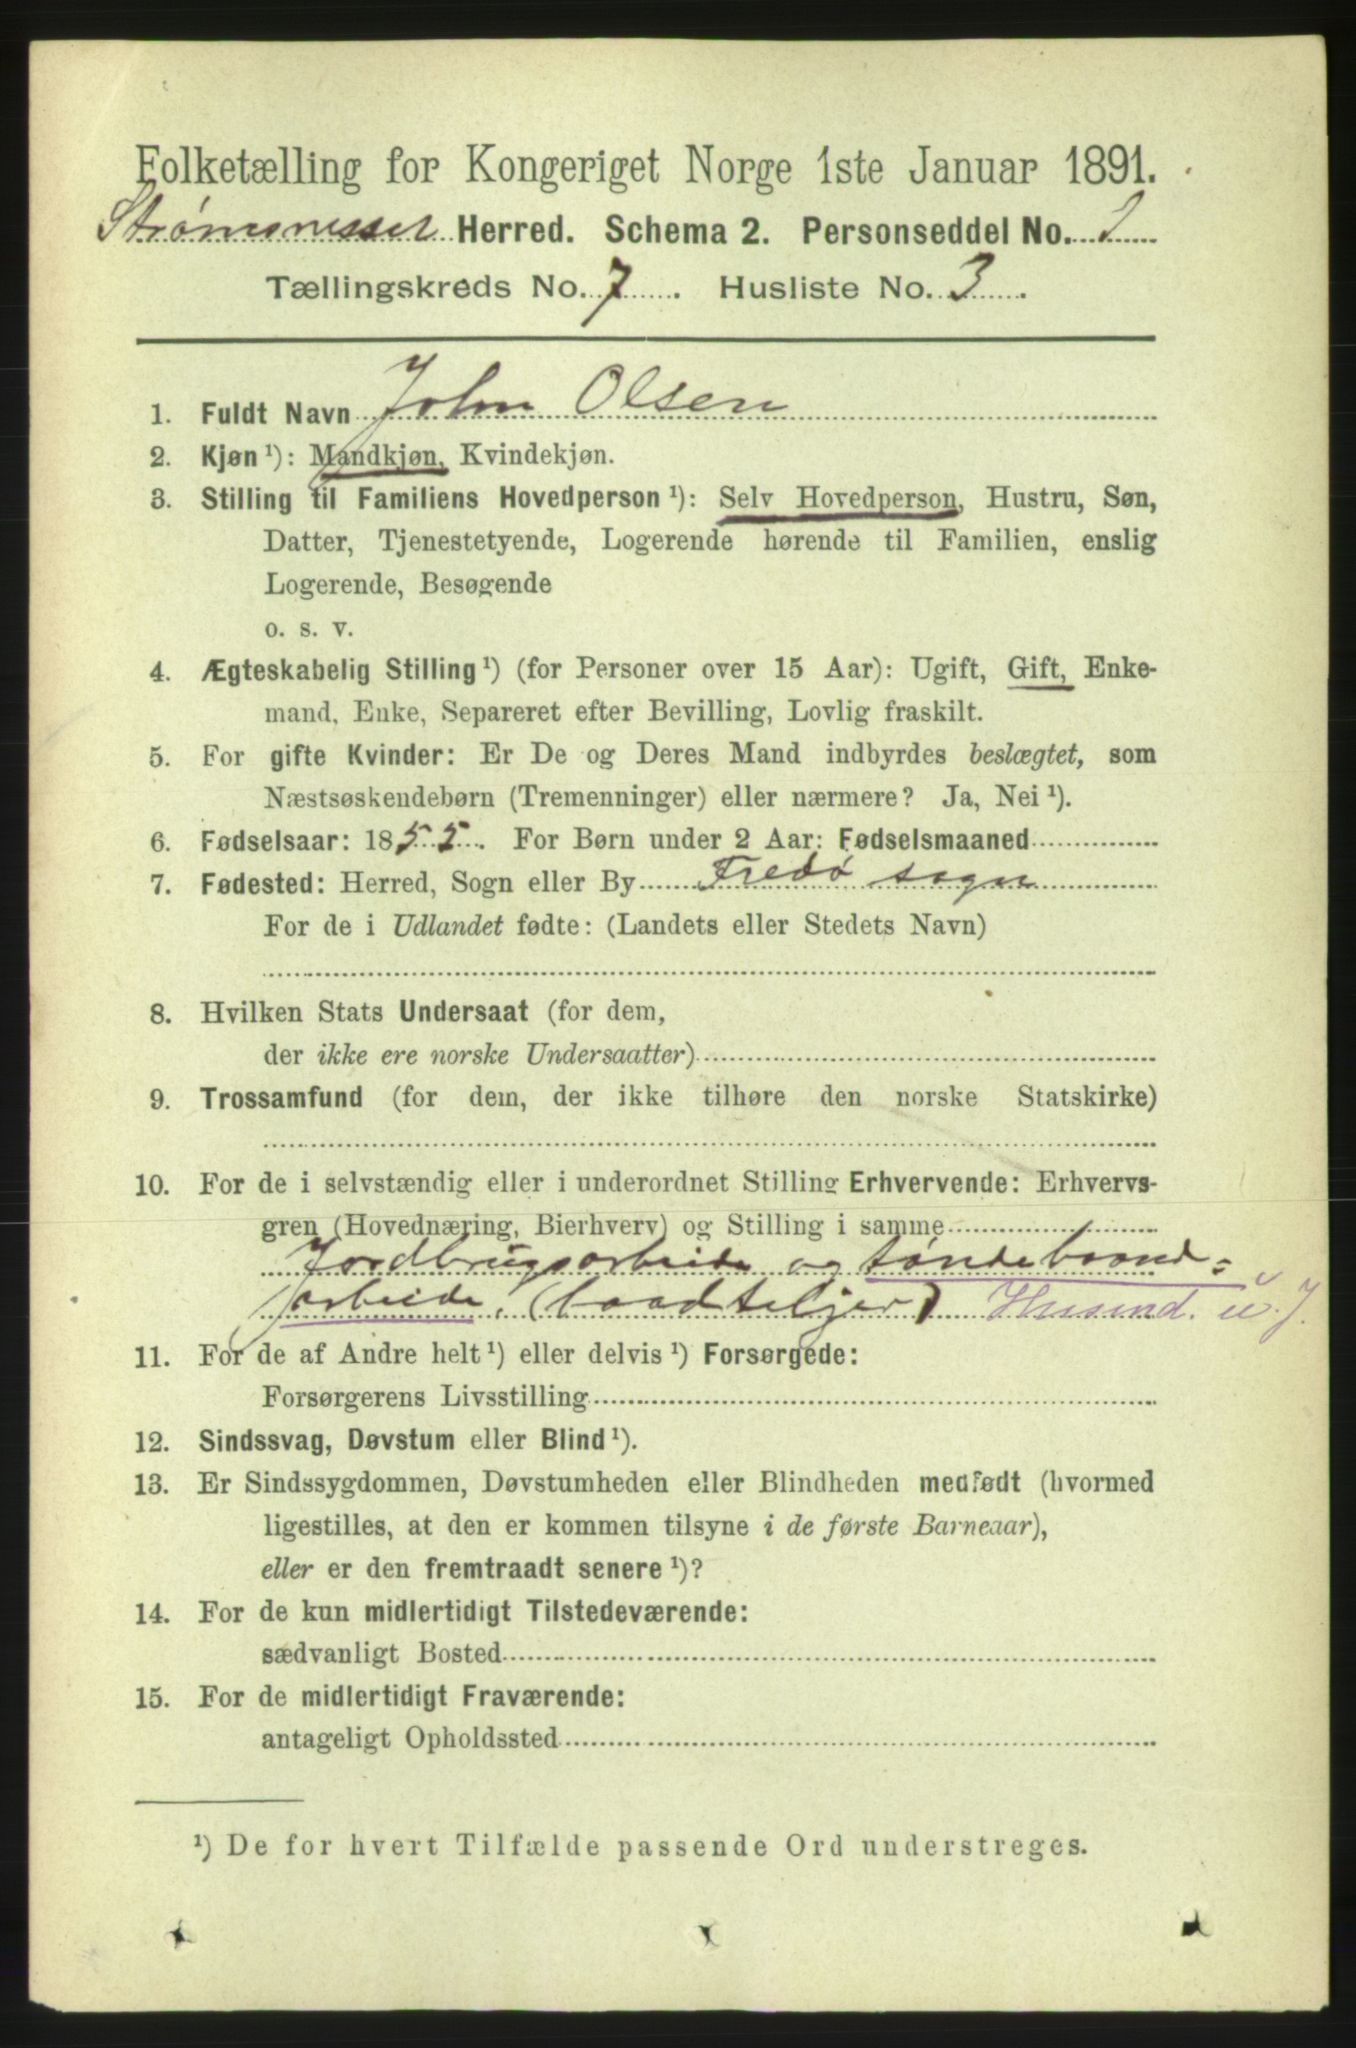 Folketælling for Kongeriget Norge 1ste Januar 1891.
Strømsnesset Herred. Schema 2. Personseddel No.
Tællingskreds No. 7. Husliste No. 3.
1. Fuldt Navn John Olsen
2. Kjøn ¹): Mandkjøn, Kvindekjøn.
3. Stilling til Familiens Hovedperson ¹): Selv Hovedperson, Hustru, Søn,
Datter, Tjenestetyende, Logerende hørende til Familien, enslig
Logerende, Besøgende
o. s. v.
4. Ægteskabelig Stilling ¹) (for Personer over 15 Aar): Ugift, Gift, Enke-
mand, Enke, Separeret efter Bevilling, Lovlig fraskilt.
5. For gifte Kvinder: Er De og Deres Mand indbyrdes beslægtet, som
Næstsøskendebørn (Tremenninger) eller nærmere? Ja, Nei ¹).
6. Fødselsaar: 1855. For Børn under 2 Aar: Fødselsmaaned
7. Fødested: Herred, Sogn eller By Fredø sogn
For de i Udlandet fødte: (Landets eller Stedets Navn)
8. Hvilken Stats Undersaat (for dem,
der ikke ere norske Undersaatter)
9. Trossamfund (for dem, der ikke tilhøre den norske Statskirke)
10. For de i selvstændig eller i underordnet Stilling Erhvervende: Erhvervs-
gren (Hovednæring, Bierhverv) og Stilling i samme
Jordbrugsarbeide og tøndebaand-
arbeide. (baadteljer) Husmd. u. J.
11. For de af Andre helt ¹) eller delvis ¹) Forsørgede:
Forsørgerens Livsstilling
12. Sindssvag, Døvstum eller Blind ¹).
13. Er Sindssygdommen, Døvstumheden eller Blindheden medfødt (hvormed
ligestilles, at den er kommen tilsyne i de første Barneaar),
eller er den fremtraadt senere ¹)?
14. For de kun midlertidigt Tilstedeværende:
sædvanligt Bosted
15. For de midlertidigt Fraværende:
antageligt Opholdssted
¹) De for hvert Tilfælde passende Ord understreges.